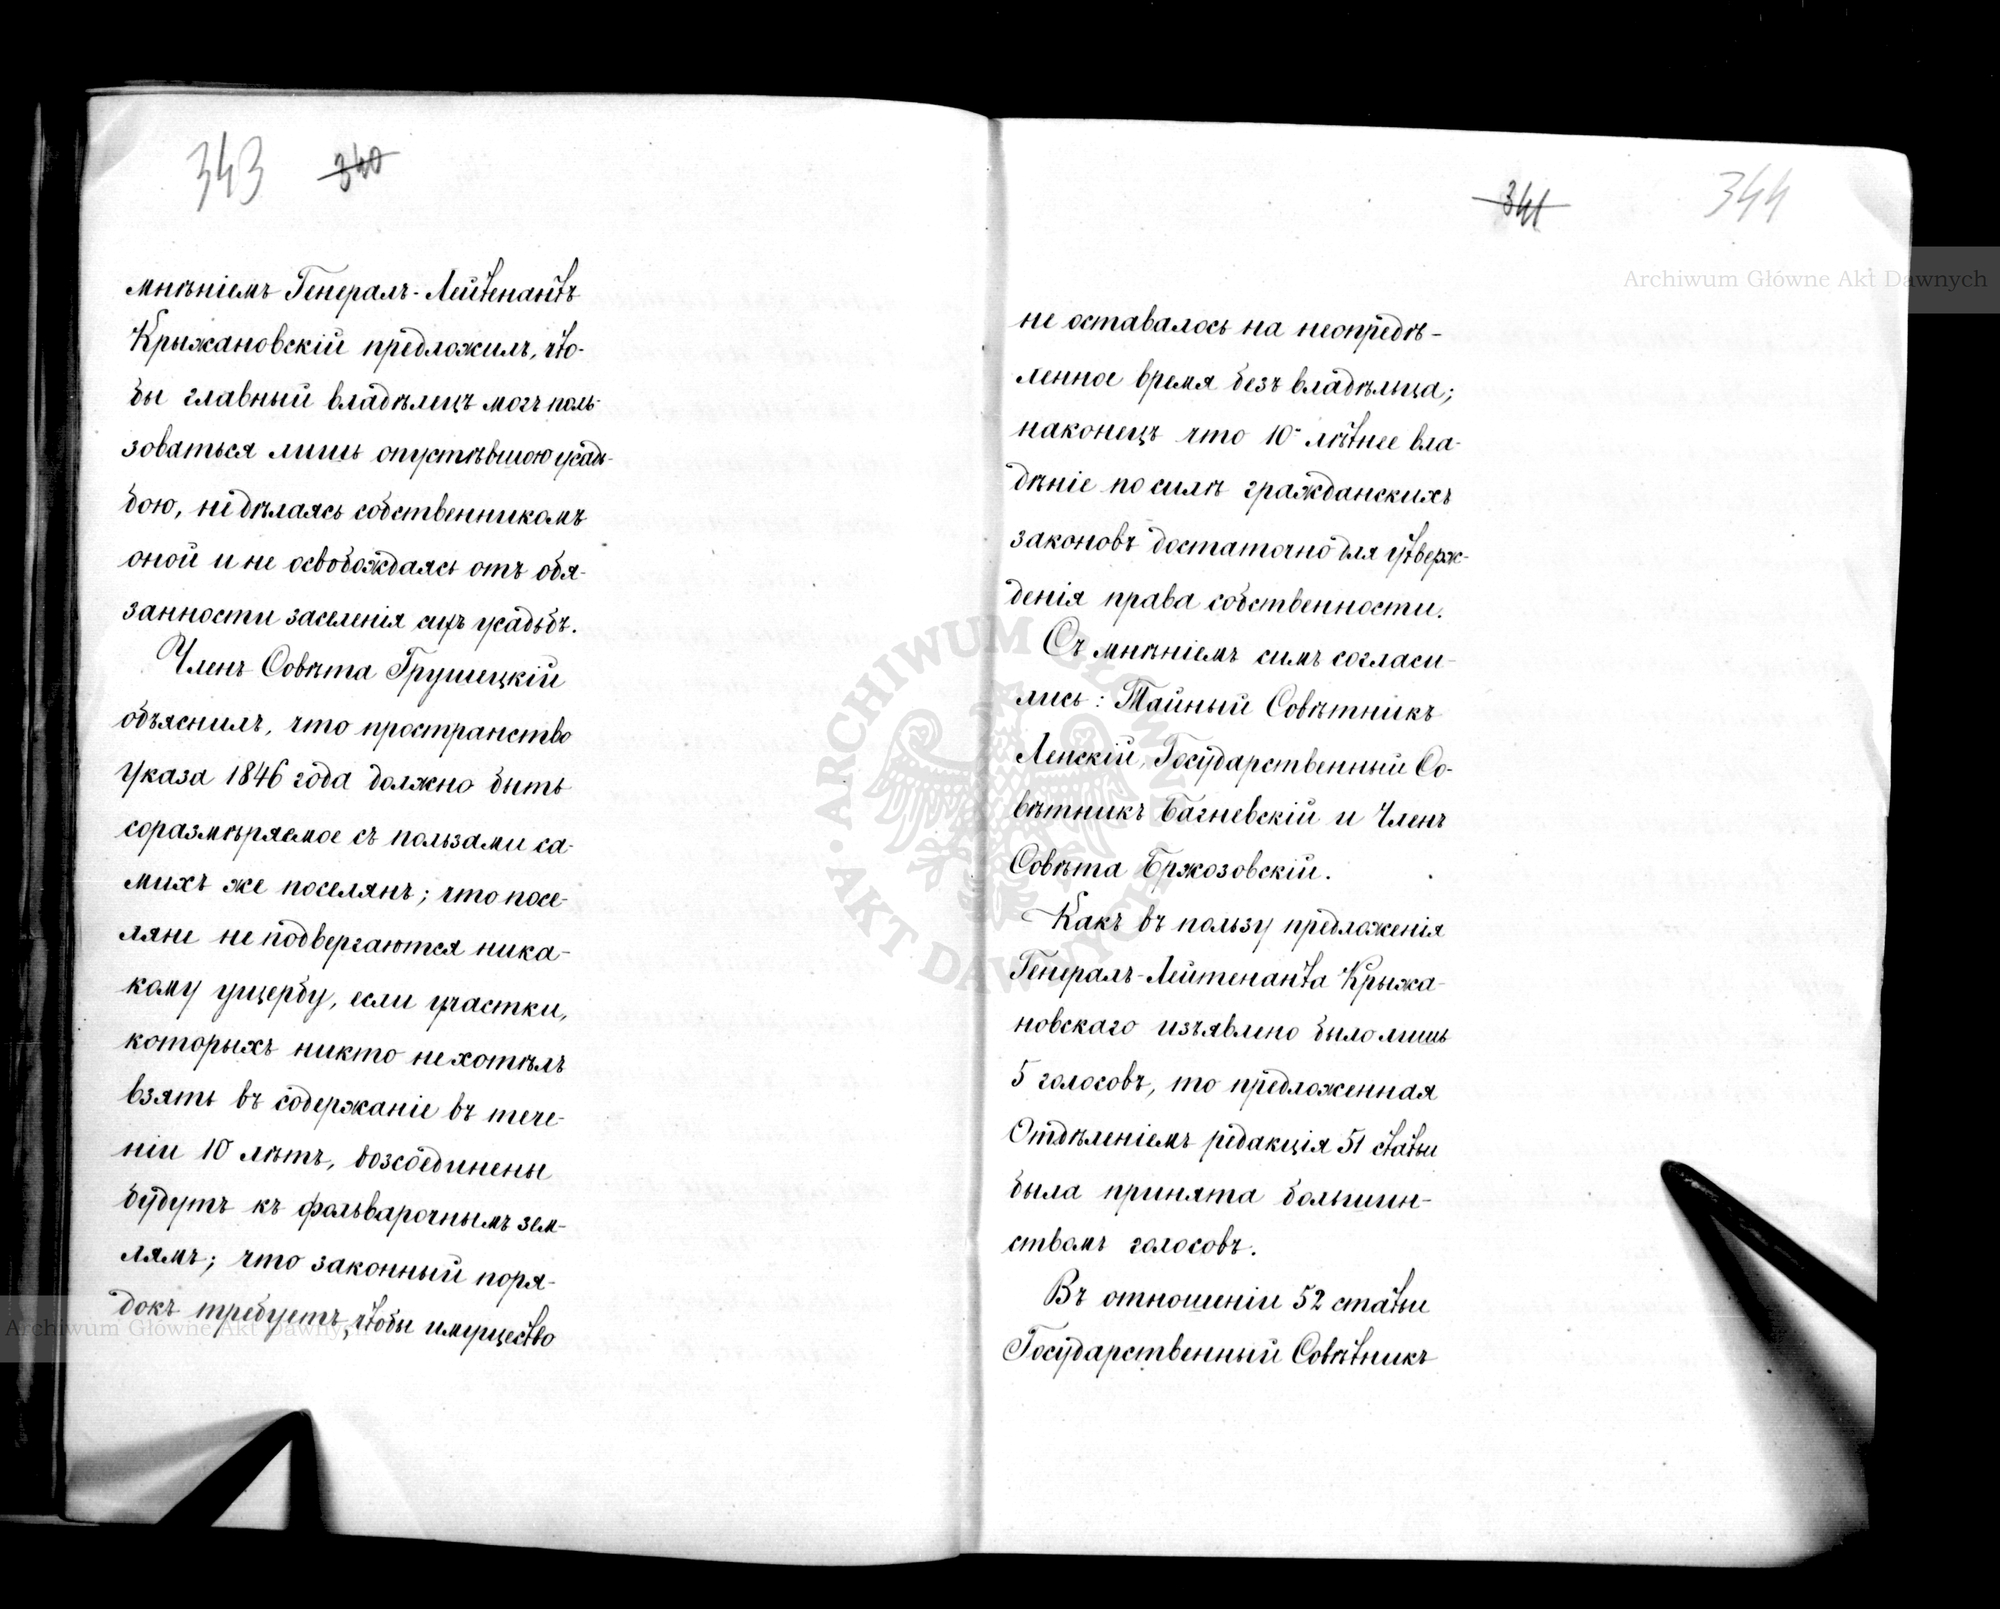 343 340
мнѣніемъ Генералъ-Лейтенантъ
Крыжановскій предложилъ, что-
бы главный владѣлецъ могъ поль-
зоваться лишь опустѣвшою усадь-
бою, не дѣлаясь собственникомъ
оной и не освобождаясь отъ обя-
занности заселенія сихъ усадьбъ.
Членъ Совѣта Грушецкій
объяснилъ, что пространство
Указа 1846 года должно быть
соразмѣряемое съ пользами са-
михъ же поселянъ; что посе-
ляне не подвергаются ника-
кому ущербу, если участки,
которыхъ никто не хотѣлъ
взять въ содержаніе въ тече-
ніи 10 лѣтъ, возсоединены
будутъ къ фольварочнымъ зем-
лямъ; что законный поря-
докъ требуетъ, чтобы имущество
341 344
не оставалось на неопредѣ-
ленное время безъ владѣльца;
наконецъ что 10-лѣтнее вла-
дѣніе по силѣ гражданскихъ
законовъ достаточно для утверж-
денія права собственности.
Съ мнѣніемъ симъ согласи-
лись: Тайный Совѣтникъ
Ленскій, Государственный Со-
вѣтникъ Багневскій и Членъ
Совѣта Бржозовскій.
Какъ въ пользу предложенія
Генералъ-Лейтенанта Крыжа-
новскаго изъявлено было лишь
5 голосовъ, то предложенная
Отдѣленіемъ редакція 51 статьи
была принята большин-
ствомъ голосовъ.
Въ отношеніи 52 статьи
Государственный Совѣтникъ
Archiwum Główne Akt Dawnych
Archiwum Główne Akt Dawnych
ARCHIWUM GŁÓWNE AKT DAWNYCH